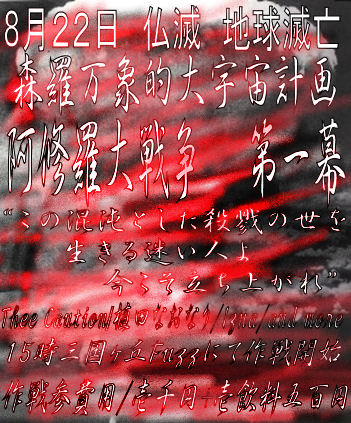 8月22日 仏滅 地球滅亡
森羅万象的大宇宙計画
阿修羅大戦争 第一幕
"この混沌とした殺戮の世を
生きる迷い人よ
今こそ立ち上がれ"
Thee Caution/植田なおなり/Iqua/and more
15時三国ヶ丘Fuzzにて作戦開始
作戦参費用/壱千円+壱飲料五百円